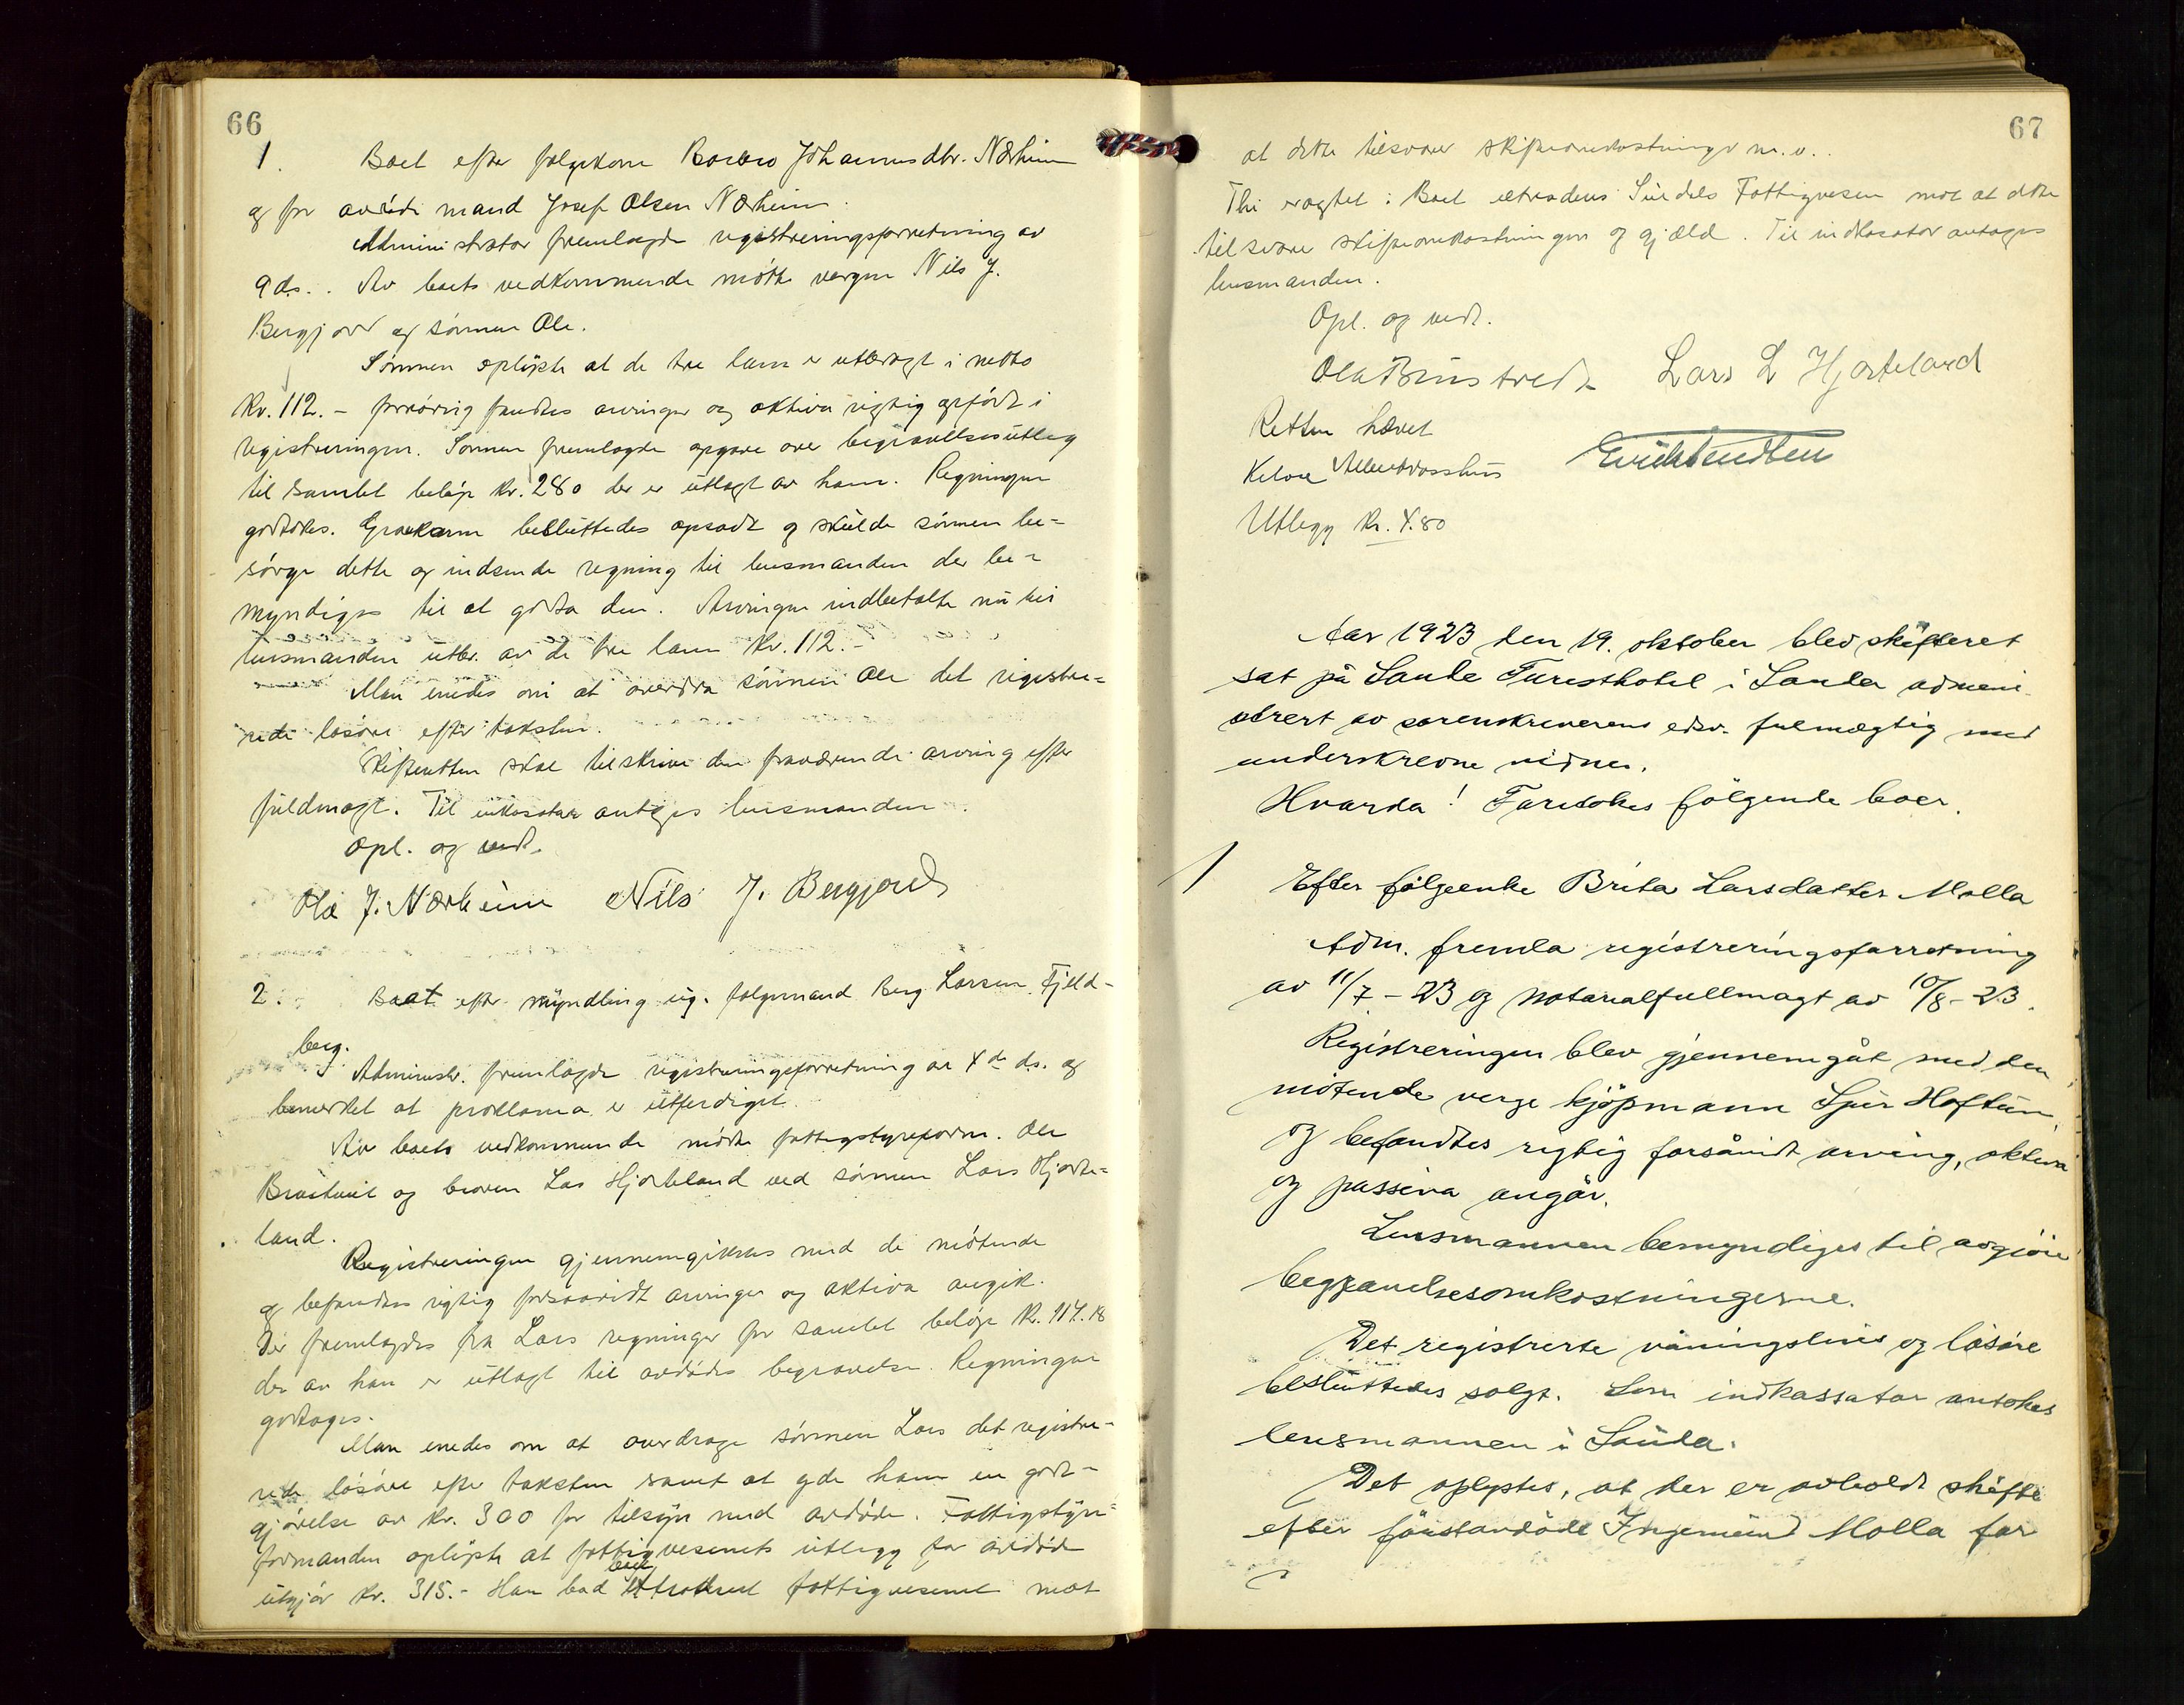 66
1. Boet efter følgekone Barbro Johannesdtr. Nærheim
og før avdöde mand Josef Olsen Nærheim.
Administrator fremlagde registreringsforretning av
9 ds.. Av boets vedkommende mötte vergen Nils J.
Bergjord og sönnen Ole.
Sönnen oplyste at de tre lam er utbragt i netto
kr. 112.- forövrig fandtes arvinger og aktiva rigtig opfört i
registreringen. Sönnen fremlagde opgave over begravelsesutlæg
til samlet belöp kr. 280 der er utlagt av ham. Regningen
godtokes. Gravkarm besluttedes opsadt og skulde sönnen be=
sörge dette og indsende regning til lensmanden der be=
myndiges til at godta den. Arvingen indbetalte nu til
lensmanden utbr. av de tre lam kr. 112.-
Man enedes om at overdra sönnen Ole det registre=
rede lösöre efter taksten.
Skifteretten skal tilskrive den fraværende arving efter
fuldmagt. Til inkassator antoges lensmanden.
Opl. og vedt.
Ole J. Nærheim Nils J. Bergjord
2. Boet efter myndling ug. følgemand Berg Larsen Fjeld-
berg.
Administr. fremlagde registreringsforretning av 4de ds. og
bemerket at proklama er utferdiget.
Av boets vedkommende mödte fattigstyreform. Ole
og broren Lars Hjorteland ved sönnen Lars Hjorte=
land.
Registreringen gjennemgikkes med de mötende
og befandtes rigtig forsaavidt arvinger og aktiva angik.
Der fremlagdes fra Lars regninger for samlet belöp kr. 117.18
der av ham er utlagt til avdödes begravelse. Regningene
godtoges.
Man enedes om at overdrage sönnen Lars det registre-
rede lösöre efter taksten samt at gi ham en godt-
gjörelse av kr. 300 for tilsyn med avdöde. Fattigstyre=
formanden oplyste at fattigvesenets utlegg for avdöde
utgjör kr. 315.- Han bad boet utlodnet fattigvesenet mot
67
at dette tilsvarer skifteomkostninger m.v..
Thi eragtet: Boet extraderes Suldals Fattigvesen mot at dette
tilsvarer skifteomkostningen og gjæld. Til indkassator antages
lensmanden.
Opl. og vedt.
Lars L Hjorteland
Retten hævet
Utlegg kr. 4.80
Aar 1923 den 19. oktober blev skifteret
sat på Sauda Turisthotel i Sauda admini-
strert av sorenskriverens edsv. fulmægtig med
underskrevne vidner.
Hvorda! Foretokes følgende boer.
1 Efter følgeenke Brita Larsdatter Molla
Adm. fremla registreringsforretning
av 11/7 - 23 og notarialfullmagt av 10/8 - 23.
Registreringen blev gjennemgåt med den
mötende verge kjöpmann Sjur Hoftun
og befandtes rigtig forsåvidt arving, aktiva
og passiva angår.
Lensmannen bemyndiges til avgjöre
begravelsesomkostningerne.
Det registrerte våningshus og lösöre
besluttedes solgt. Som indkassator antokes
lensmannen i Sauda.
Det oplystes, at der er avholdt skifte
efter förstavdöde Ingemund Molla for